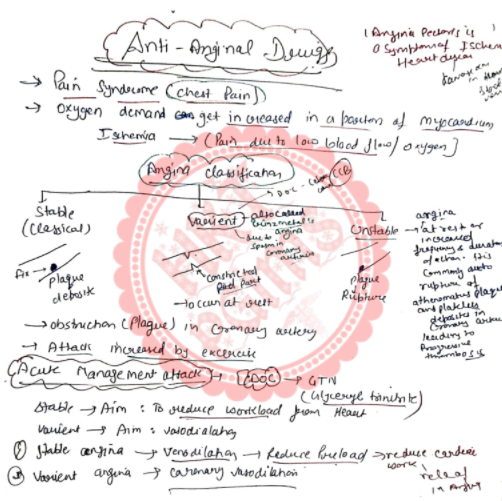 Anti-Anginal Drugs
(Angina Pectoris is
a Symptom of Ischem
Heart disease
→ Pain Syndrome (Chest Pain)
→ Oxygen demand get increased in a portion of myocardium
Ischemia → (Pain due to low blood flow/oxygen]
Angina Classification
Stable
(Classical)
plaque
deposite
Varient → also called
prinzmetal's
due to angina
spasm in
coronary
DOC - CCB
Constricted
part
→ to occur at rest
Unstable
Plaque
Rupture
angina
→ at rest or
increased
frequency & duration
of
commonly due to
rupture of
atheromatus plaque
and platelets
deposites in
coronary artery
leading to
Progressive
thrombosis
→ obstruction (Plaque) in Coronary artery
→ Attack increased by excercise
Acute Management attack → DOC → GTN
(Glyceryl trinitrite)
Stable → Aim : To reduce workload from Heart
Varient → Aim : vasodialation
① Stable angina → Venodilation → Reduce Preload → reduce cardiac
work
② Varient angina → coronary vasodilation
relief
in Angina